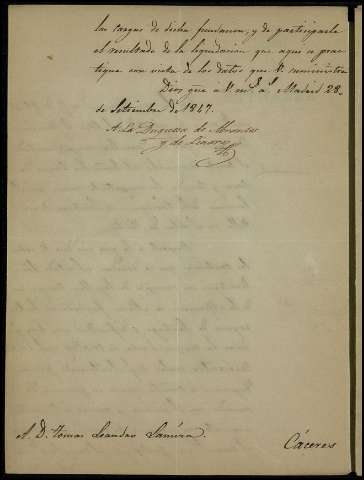 las cargas de dicha fundacion, y de participarle
el resultado de la liquidacion que aqui se prac-
tique con vista de los datos que V. suministra
Dios gue a V. ms. as. Madrid 28
de Setiembre de 1847.
A La Duquesa de Abrantes
y de Linares
A D. Tomas Leandro
Cáceres